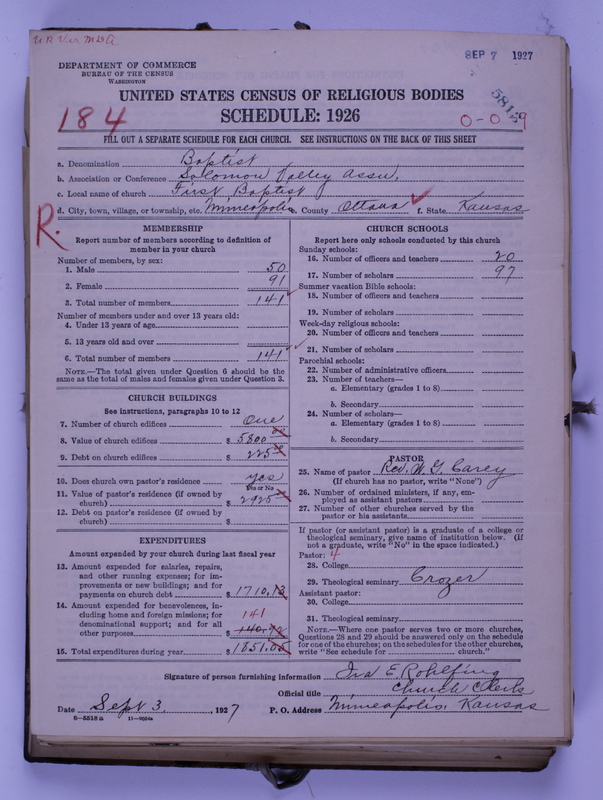 SEP 7 1927
DEPARTMENT OF COMMERCE
BUREAU OF THE CENSUS
WASHINGTON
UNITED STATES CENSUS OF RELIGIOUS BODIES
SCHEDULE: 1926
184
0-0-9
FILL OUT A SEPARATE SCHEDULE FOR EACH CHURCH. SEE INSTRUCTIONS ON THE BACK OF THIS SHEET
a. Denomination Baptist
b. Association or Conference Solomon Valley Assn.
c. Local name of church First Baptist
d. City, town, village, or township, etc. Minneapolis e. County Ottawa f. State Kansas
R.
MEMBERSHIP
Report number of members according to definition of
member in your church
Number of members, by sex:
1. Male 50
2. Female 91
3. Total number of members 141
Number of members under and over 13 years old:
4. Under 13 years of age
5. 13 years old and over
6. Total number of members 141
NOTE.—The total given under Question 6 should be the
same as the total of males and females given under Question 3.
CHURCH BUILDINGS
See instructions, paragraphs 10 to 12
7. Number of church edifices One
8. Value of church edifices $ 5800 00
9. Debt on church edifices $ 225 00
10. Does church own pastor's residence yes
Yes or No
11. Value of pastor's residence (if owned by
church) $ 2925
12. Debt on pastor's residence (if owned by
church) $
EXPENDITURES
Amount expended by your church during last fiscal year
13. Amount expended for salaries, repairs,
and other running expenses; for im-
provements or new buildings; and for
payments on church debt $ 1710.13
14. Amount expended for benevolences, in-
cluding home and foreign missions; for
denominational support; and for all
other purposes $ 140.92
141
15. Total expenditures during year $ 1851.05
CHURCH SCHOOLS
Report here only schools conducted by this church
Sunday schools:
16. Number of officers and teachers 20
17. Number of scholars 97
Summer vacation Bible schools:
18. Number of officers and teachers
19. Number of scholars
Week-day religious schools:
20. Number of officers and teachers
21. Number of scholars
Parochial schools:
22. Number of administrative officers
23. Number of teachers—
a. Elementary (grades 1 to 8)
b. Secondary
24. Number of scholars—
a. Elementary (grades 1 to 8)
b. Secondary
PASTOR
25. Name of pastor Rev. W. G. Carey
(If church has no pastor, write "None")
26. Number of ordained ministers, if any, em-
ployed as assistant pastors
27. Number of other churches served by the
pastor or his assistants
If pastor (or assistant pastor) is a graduate of a college or
theological seminary, give name of institution below. (If
not a graduate, write "No" in the space indicated.)
Pastor: 4
28. College
29. Theological seminary Crozer
Assistant pastor:
30. College
31. Theological seminary
NOTE.—Where one pastor serves two or more churches,
Questions 28 and 29 should be answered only on the schedule
for one of the churches; on the schedules for the other churches,
write "See schedule for church."
Signature of person furnishing information Ira E. Rohlfing
Official title Church Clerk
Date Sept 3, 1927 P. O. Address Minneapolis, Kansas